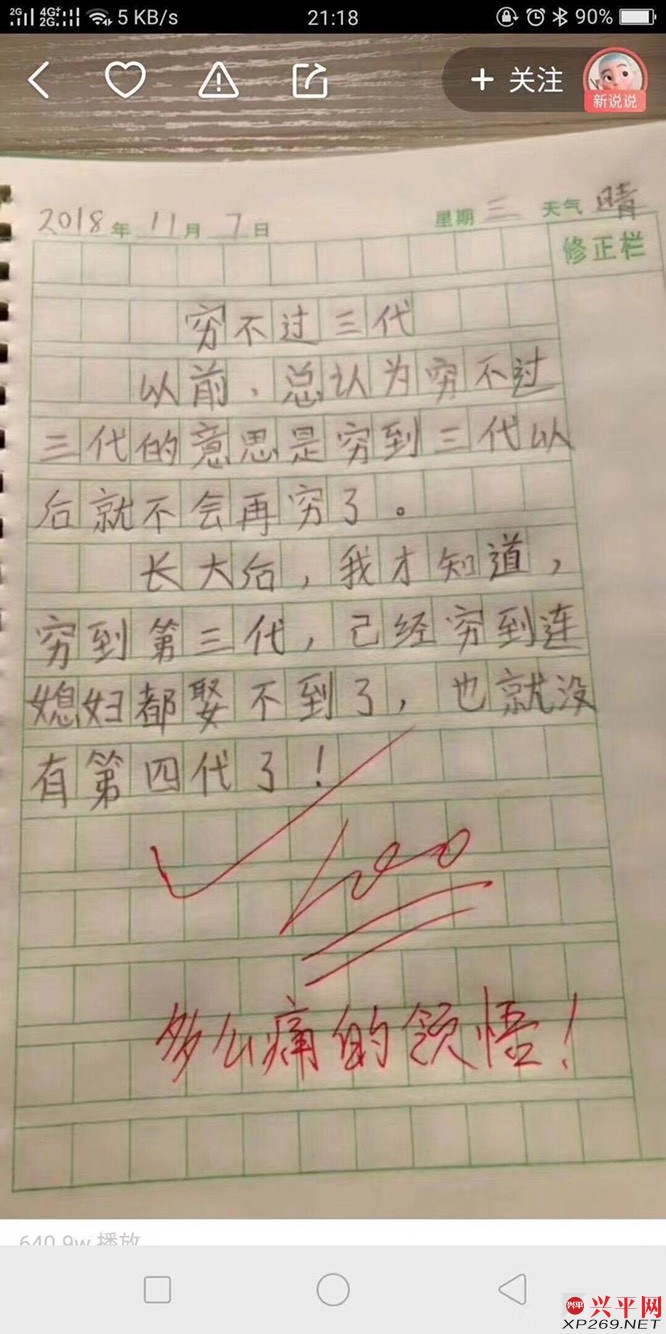 2G 4G+ 2G 5 KB/s 21:18 90%
+ 关注
新说说
2018年11月7日 星期三 天气晴
修正栏
穷不过三代
以前，总认为穷不过
三代的意思是穷到三代以
后就不会再穷了。
长大后，我才知道，
穷到第三代，己经穷到连
媳妇都娶不到了，也就没
有第四代了！
100
多么痛的领悟！
640.9w 播放
兴平
兴平网
XP269.NET